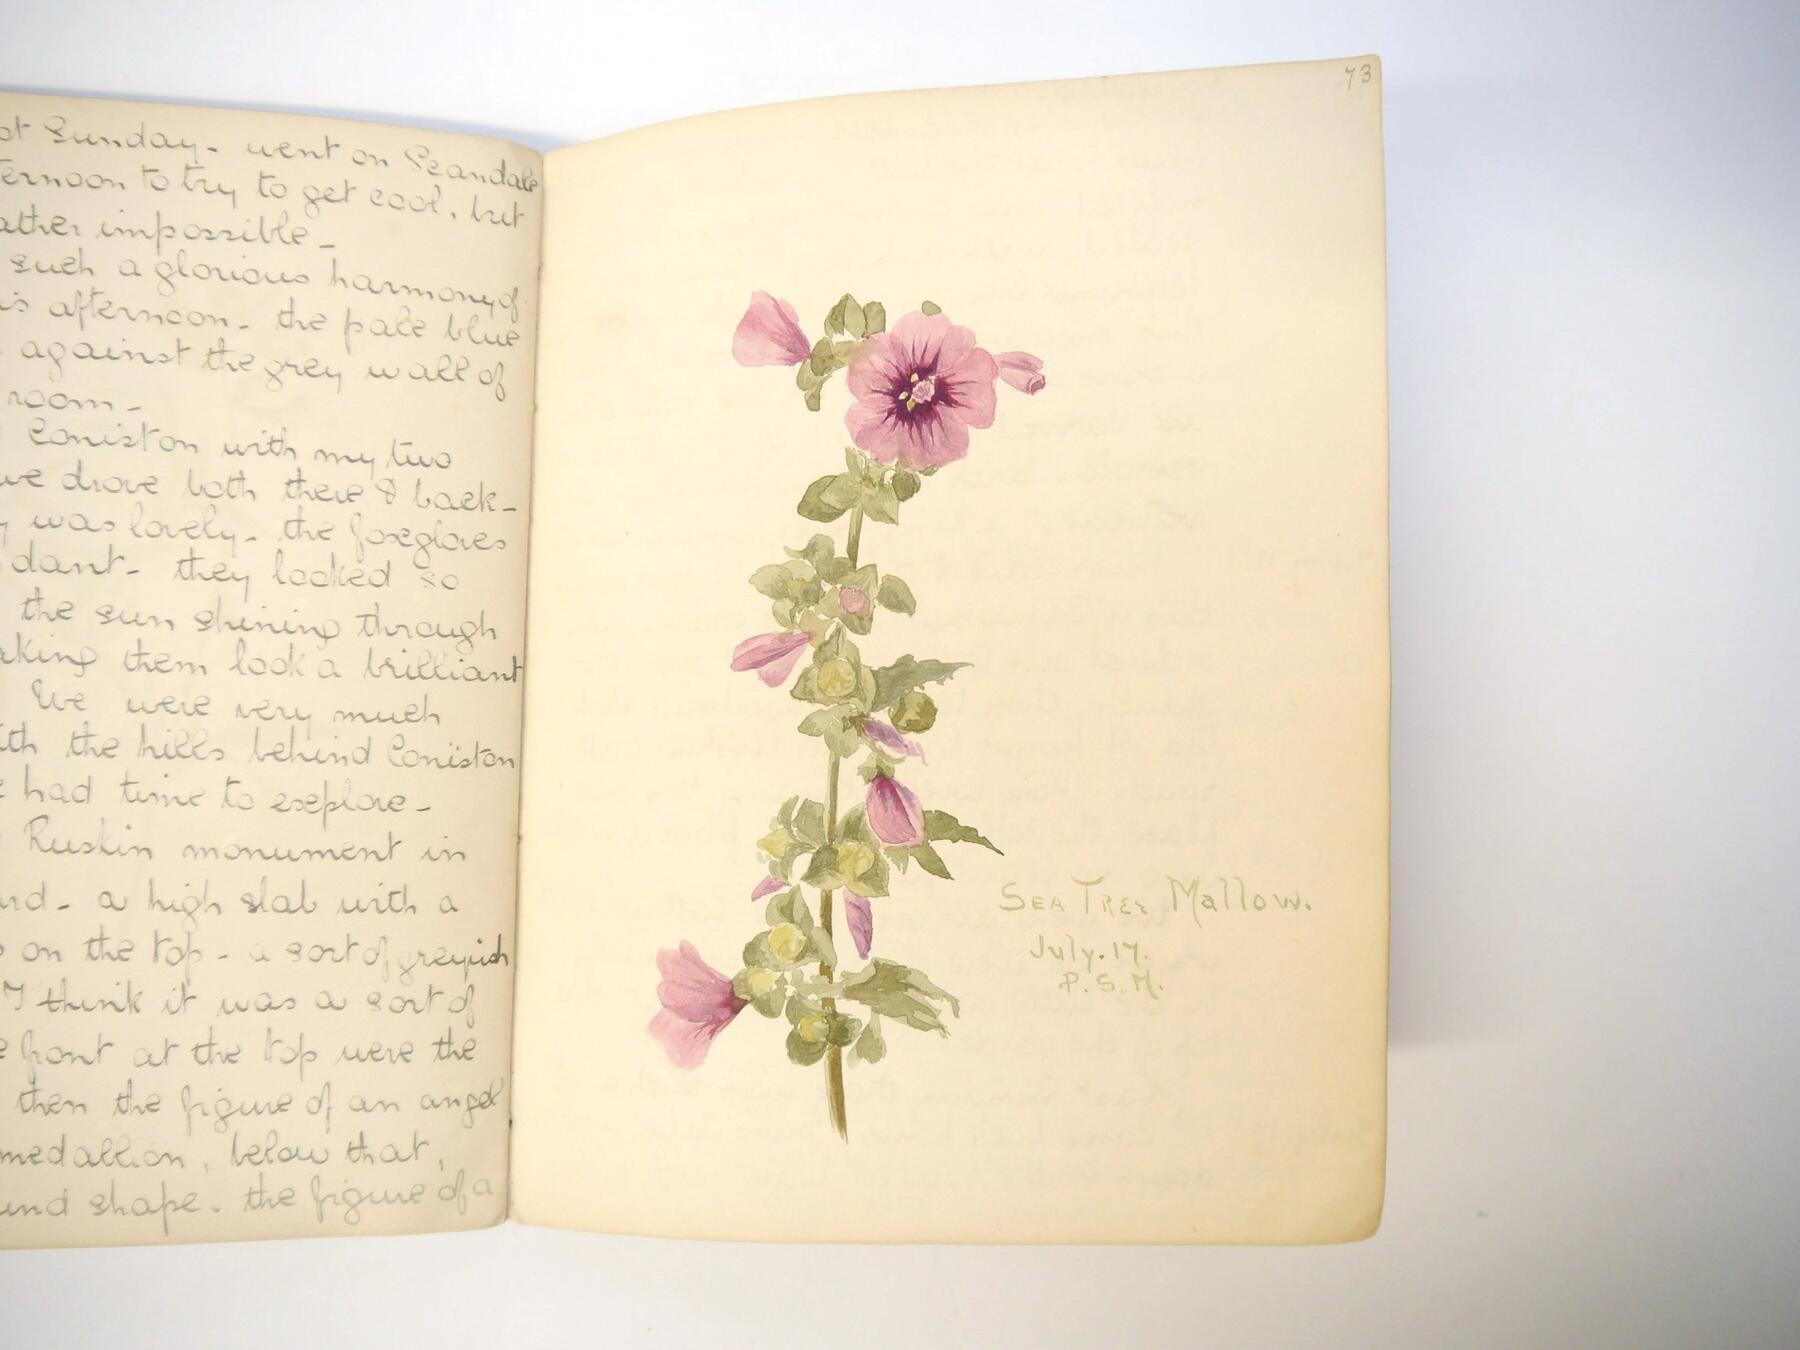 ot Sunday - went on Scandale
ternoon to try to get cool, but
ather impossible -
such a glorious harmony of
is afternoon - the pale blue
against the grey wall of
room -
Coniston with my two
we drove both there & back -
y was lovely - the foxgloves
dant - they looked so
the sun shining through
aking them look a brilliant
We were very much
ith the hills behind Coniston
e had time to explore -
Ruskin monument in
ard - a high slab with a
s on the top - a sort of greyish
I think it was a sort of
e front at the top were the
then the figure of an angel
medallion, below that,
und shape - the figure of a
73
Sea Tree Mallow.
July. 17.
P. S. M.